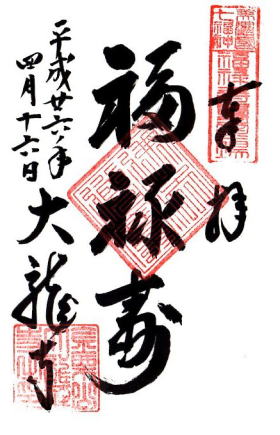 奉拝
福禄寿
平成廿六年
四月十六日
大龍寺